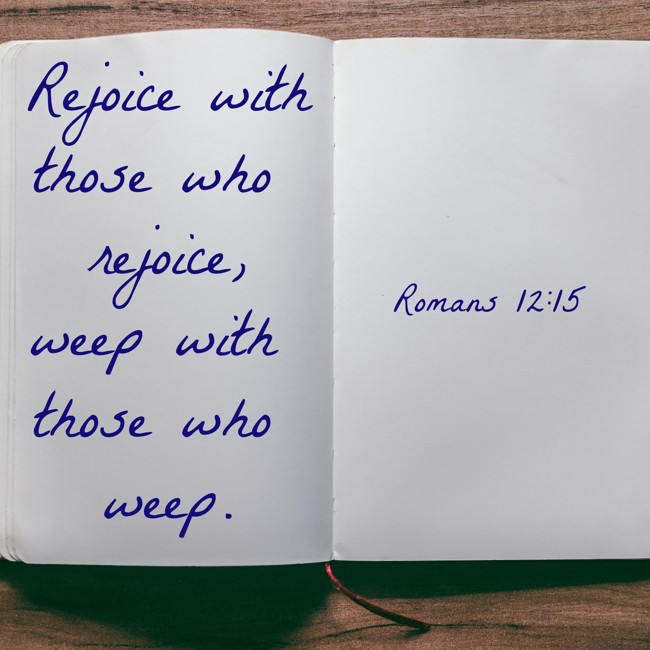 Rejoice with
those who
rejoice,
weep with
those who
weep.
Romans 12:15